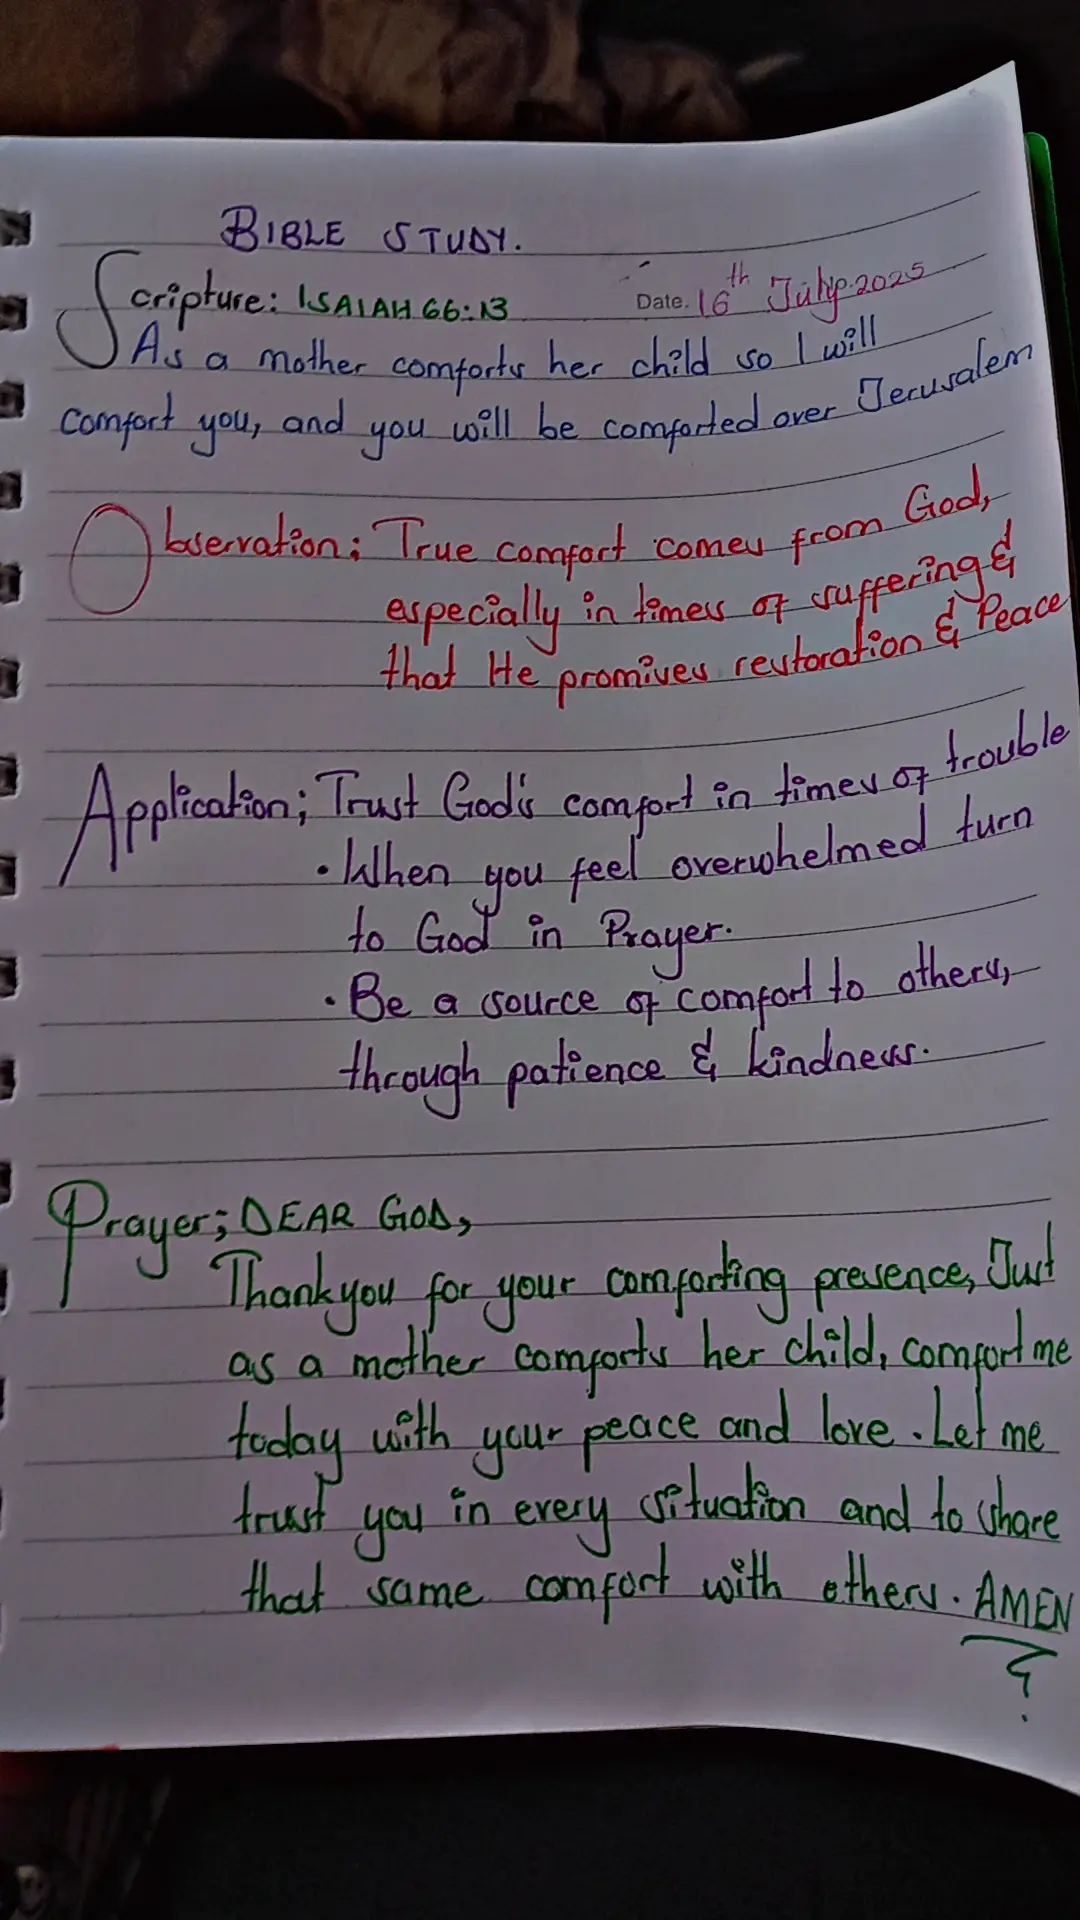 BIBLE STUDY.
Scripture: ISAIAH 66:13
Date. 16th July 2025
As a mother comforts her child so I will
comfort you, and you will be comforted over Jerusalem
Observation: True comfort comes from God,
especially in times of suffering &
that He promises restoration & Peace
Application; Trust God's comfort in times of trouble
• When you feel overwhelmed turn
to God in Prayer.
• Be a source of comfort to others,
through patience & kindness.
Prayer; DEAR GOD,
Thank you for your comforting presence, Just
as a mother comforts her child, comfort me
today with your peace and love. Let me
trust you in every situation and to share
that same comfort with others. AMEN